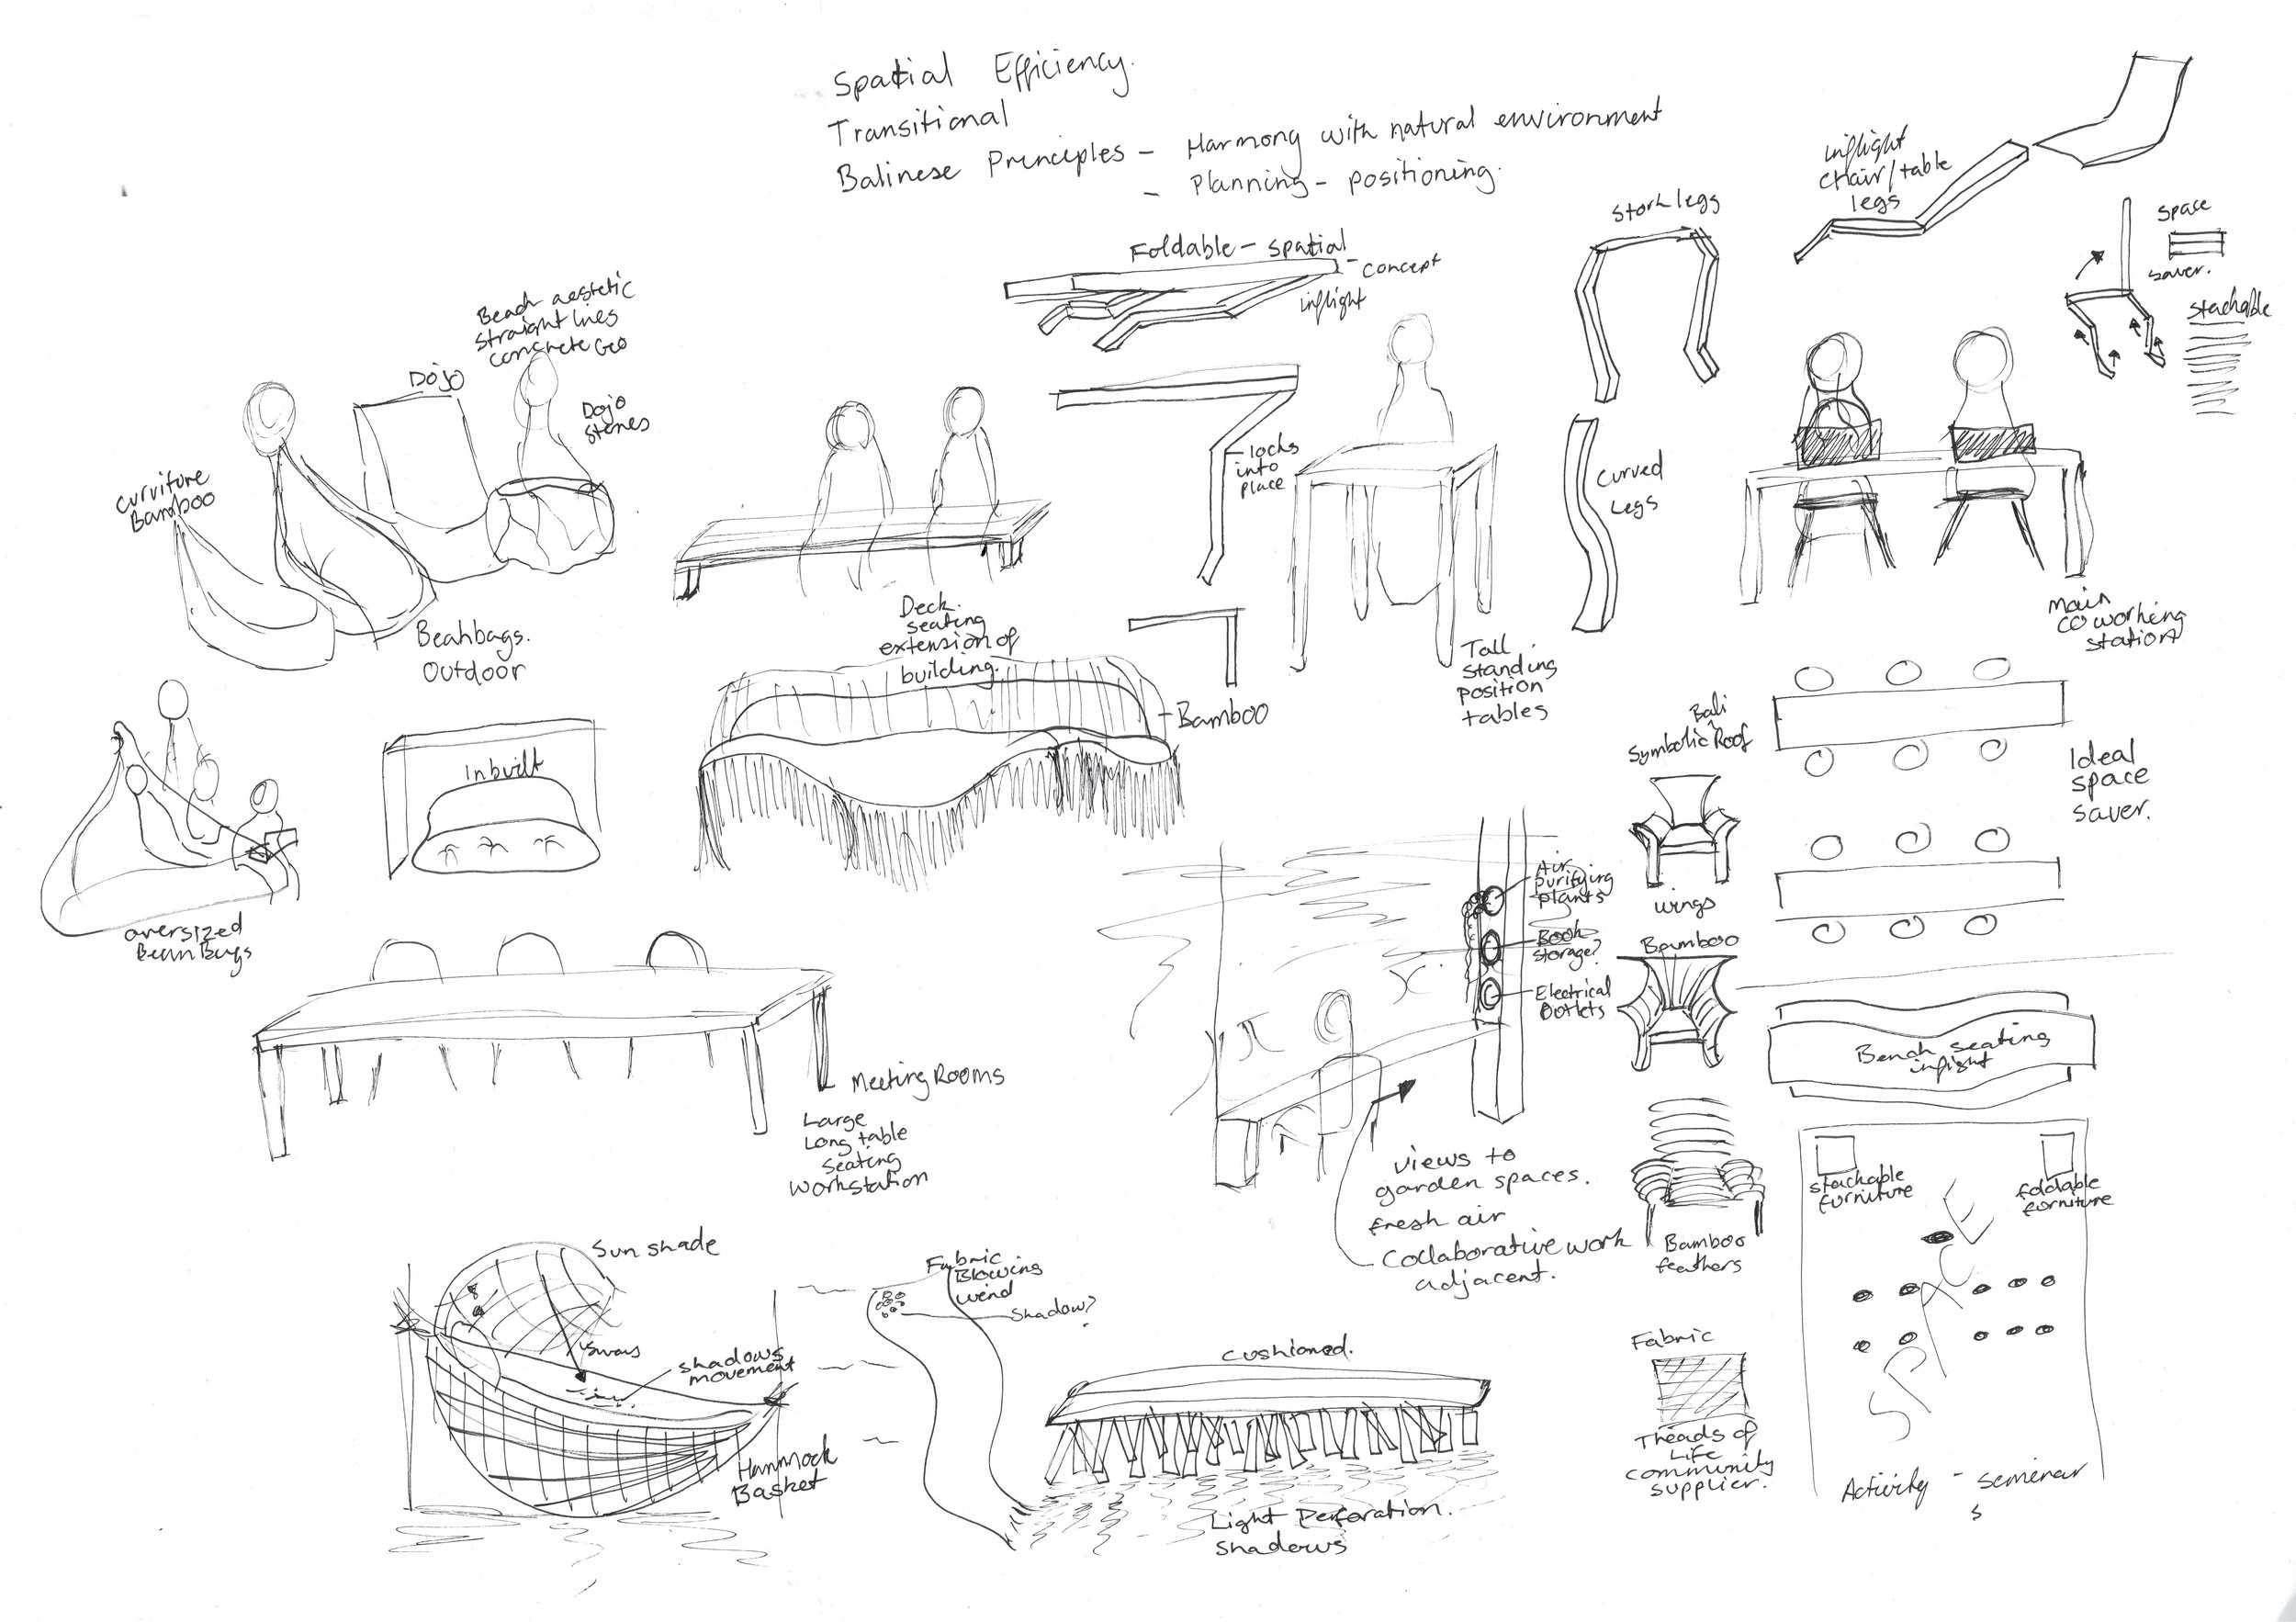 Spatial Efficiency.
Transitional
Balinese Principles - Harmony with natural environment
- Planning - positioning.
Foldable - spatial
- concept
inflight
Stork legs
inflight
chair/table
legs
space
saver.
stackable
Beach aestetic
straight lines
concrete Geo
Dojo
Dojo
stones
curviture
Bamboo
Beahbags.
Outdoor
Deck
seating
extension of
building.
locks
into
place
Curved
Legs
Tall
standing
position
tables
Main
coworking
station
oversized
Bean Bags
Inbuilt
Bamboo
Bali
Symbolic Roof
wings
Bamboo
Ideal
space
saver.
Air
purifying
plants
Book
storage?
Electrical
Outlets
Meeting Rooms
Large
Long table
seating
workstation
views to
garden spaces.
fresh air
Collaborative work
adjacent.
Bamboo
feathers
Bench seating
inflight
stackable
furniture
foldable
furniture
SPACE
Activity - seminar
s
Sun shade
Sways
shadows
movement
Hammock
Basket
Fabric
Blowing
wind
Shadow?
cushioned.
Light Perforation.
Shadows
Fabric
Theads of
Life
community
supplier.